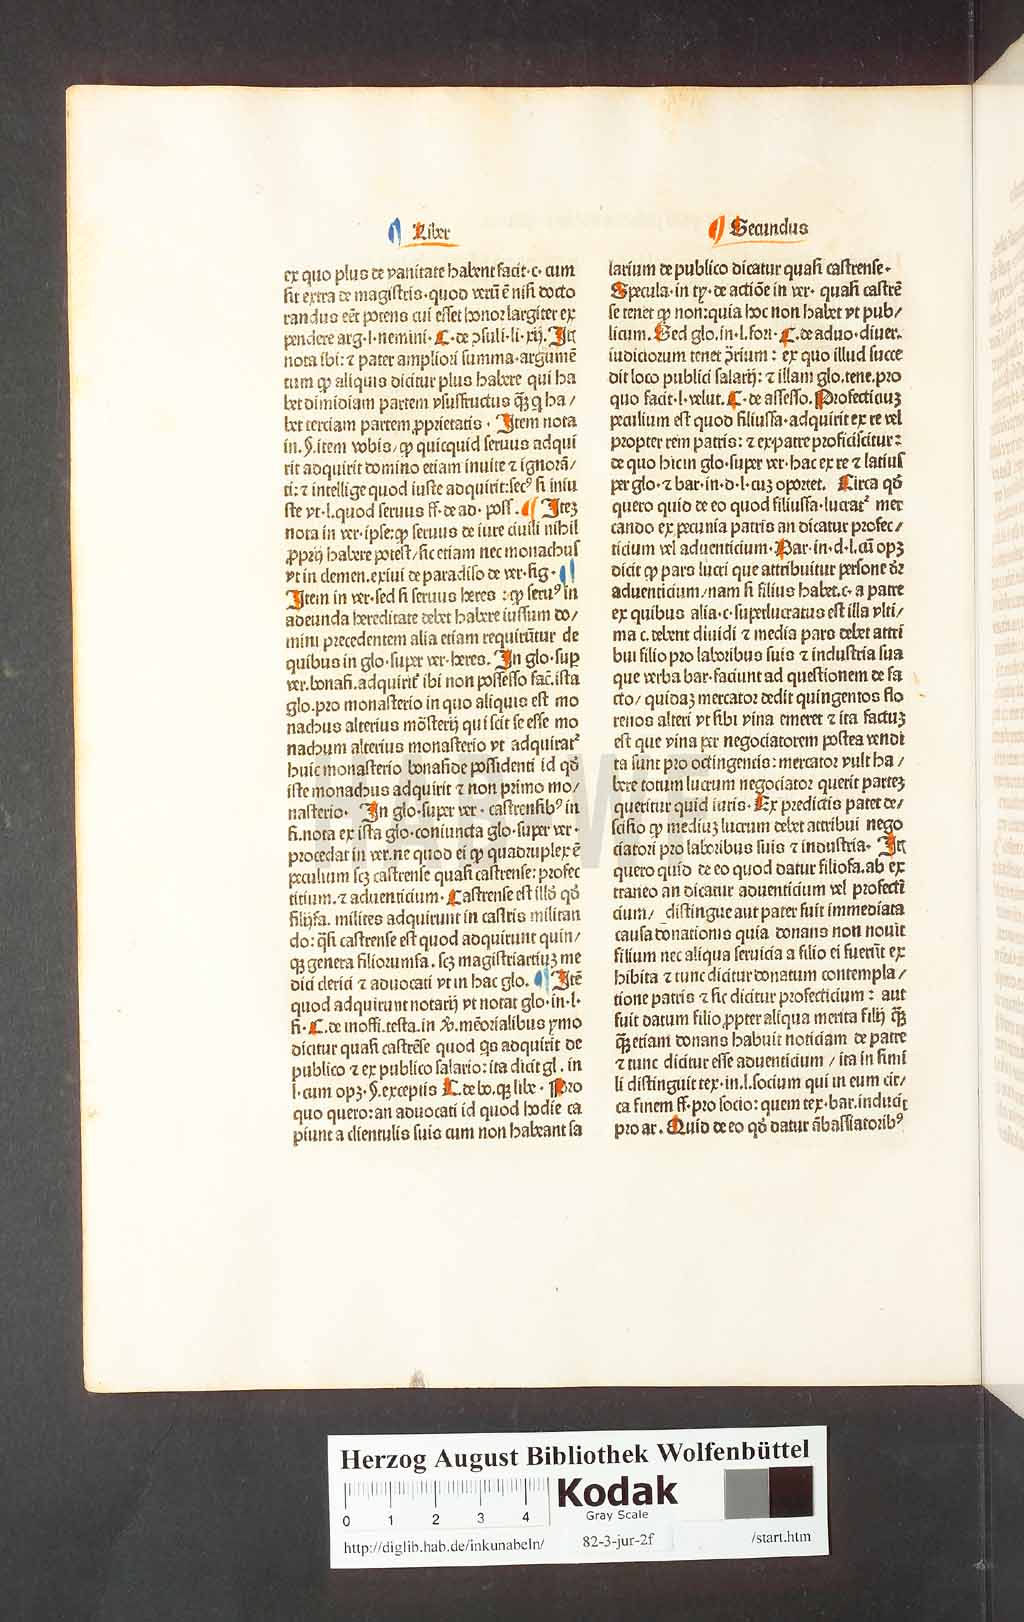 Liber
ex quo plus de vanitate habent facit·c· cum
sit extra de magistris·quod verū ē nisi docto
randus eēt potens cui esset honor largiter ex
pendere arg·l·nemini· C· de ↄsuli·li·xij· Itē
nota ibi: ⁊ pater ampliori summa·argumē
tum ꝙ aliquis dicitur plus habere qui ha
bet dimidiam partem vsusfructus qͣꝫ q̇ ha/
bet terciam partem ꝓprietatis · Item nota
in·§·item vobis/ꝙ quicquid seruus adqui
rit adquirit domino etiam inuite ⁊ ignorā/
ti: ⁊ intellige quod iuste adquirit:secꝰ si iniu
ste vt·l·quod seruus ff·de ad· poss· Iteꝫ
nota in ver·ipse:ꝙ seruus de iure ciuili nihil
ꝓprij habere potest/sic etiam nec monachus
vt in clemen.exiui de paradiso de ver·sig·
Item in ver·sed si seruus heres :ꝙ seruꝰ in
adeunda hereditate debet habere iussum do/
mini precedentem alia etiam requirūtur de
quibus in glo·super ver·heres. In glo·suꝑ
ver.bonafi.adquirit᷑ ibi non possesso fac̄·ista
glo·pro monasterio in quo aliquis est mo
nachus alterius mōsterij qui scit se esse mo
nachum alterius monasterio vt adquirat᷑
huic monasterio bonafide possidenti id qd̕
iste monachus adquirit ⁊ non primo mo/
nasterio· In glo·super ver· castrensibꝰ in
fi.nota ex ista glo·coniuncta glo·super ver·
procedat in ver.ne quod ei ꝙ quadruplex ē
peculium scꝫ castrense quasi castrense: profec
titium·⁊ aduenticium· Castrense est illd̕ qd̕
filijfa. milites adquirunt in castris militan
do: q̄si castrense est quod adquirunt quin/
qꝫ genera filiorumfa· scꝫ magistriartiuꝫ me
dici clerici ⁊ aduocati vt in hac glo. Itē
quod adquirunt notarij vt notat glo·in·l·
fi·C.de inoffi.testa.in ꝟ. mēorialibus ymo
dicitur quasi castrēse quod q̇s adquirit de
publico ⁊ ex publico salario: ita dicit gl. in
l·cum opꝫ·§.exceptis C.de bo.qꝫ libe· Pro
quo quero:an aduocati id quod hodie ca
piunt a clientulis suis cum non habeant sa
Secundus
larium de publico dicatur quasi castrense·
Specula·in ty·de actiōe in ver· quasi castrē
se tenet ꝙ non:quia hoc non habet vt pub/
licum. Sed glo.in·l.fori·C.de aduo·diuer.
iudiciorum tenet ↄ̄rium : ex quo illud succe
dit loco publici salarij: ⁊ illam glo.tene.pro
quo facit·l·velut. C·de assesso. Profecticiuꝫ
peculium est quod filiusfa·adquirit ex re vel
propter rem patris: ⁊ ex·patre proficiscitur:
de quo hic in glo·super ver·hac ex re ⁊ latius
per glo·⁊ bar·in·d·l·cuꝫ oportet. Circa qd̕
quero quid de eo quod filiusfa·lucrat᷑ mer
cando ex pecunia patris an dicatur profec/
ticium vel aduenticium·Bar·in·d·l.cū opꝫ
dicit ꝙ pars lucri que attribuitur persone dr̄
aduenticium/nam si filius habet.c· a patre
ex quibus alia·c·superlucratus est illa vlti/
ma c. debent diuidi ⁊ media pars debet attri
bui filio pro laboribus suis ⁊ industria sua
que verba bar·faciunt ad questionem de fa
cto/ quidaꝫ mercator dedit quingentos flo
renos alteri vt sibi vina emeret ⁊ ita factuꝫ
est que vina per negociatorem postea vendi
ta sunt pro octingentis: mercator vult ha/
bere totum lucrum negociator querit parteꝫ
queritur quid iuris· Ex predictis patet de/
cisio ꝙ mediuꝫ lucrum debet attribui nego
ciatori pro laboribus suis ⁊ industria· Itē
quero quid de eo quod datur filiofa.ab ex
traneo an dicatur aduenticium vel profecti
cium/ distingue aut pater fuit immediata
causa donationis quia donans non nouit
filium nec aliqua seruicia a filio ei fuerūt ex
hibita ⁊ tunc dicitur donatum contempla/
tione patris ⁊ sic dicitur profecticium : aut
fuit datum filio ꝓpter aliqua merita filij qͣꝫ
qͣꝫ etiam donans habuit noticiam de patre
⁊ tunc dicitur esse aduenticium / ita in simi
li distinguit tex·in.l.socium qui in eum cir/
ca finem ff·pro socio: quem tex·bar.inducit
pro ar. Quid de eo qd̕ datur ābassiatoribꝰ
Herzog August Bibliothek Wolfenbüttel
0 1 2 3 4
Kodak
Gray Scale
http://diglib.hab.de/inkunabeln/ 82-3-jur-2f /start.htm
HAB WF